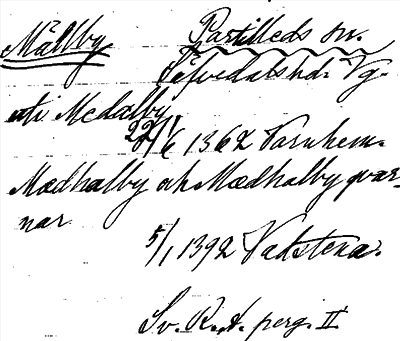 Mällby Partilleds sn.
Säfvedals hd. Vg.
uti Medalby
22/6 1362 Varnhem.
Mædhalby ok Mædhalby qvar-
nar
5/1 1392 Vadstena.
Sv. R. A. perg. II